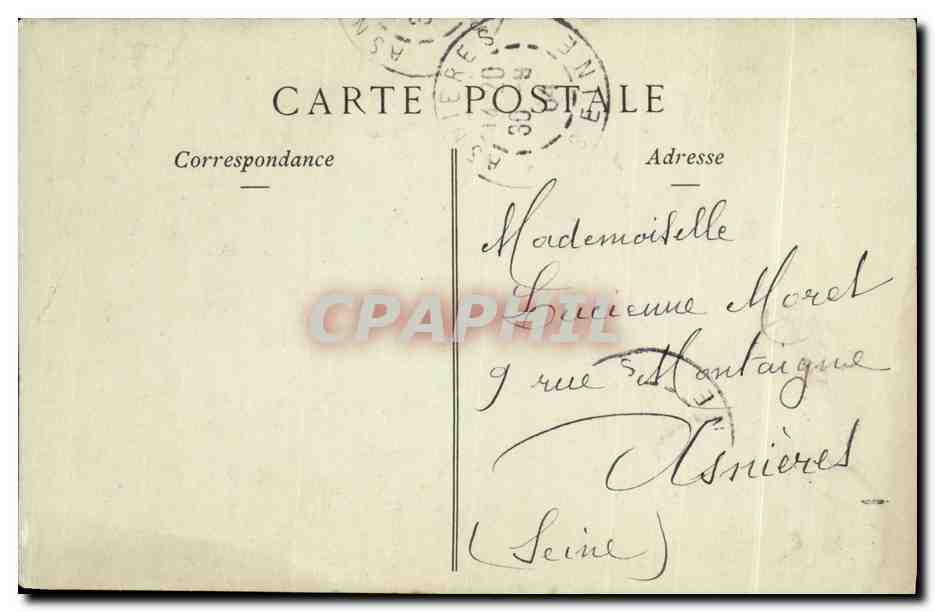 CARTE POSTALE
Correspondance
Adresse
ASNIERES
SEINE
30
Mademoiselle
Lucienne Moret
9 rue Montaigne
Asnières
(Seine)
CPAPHIL